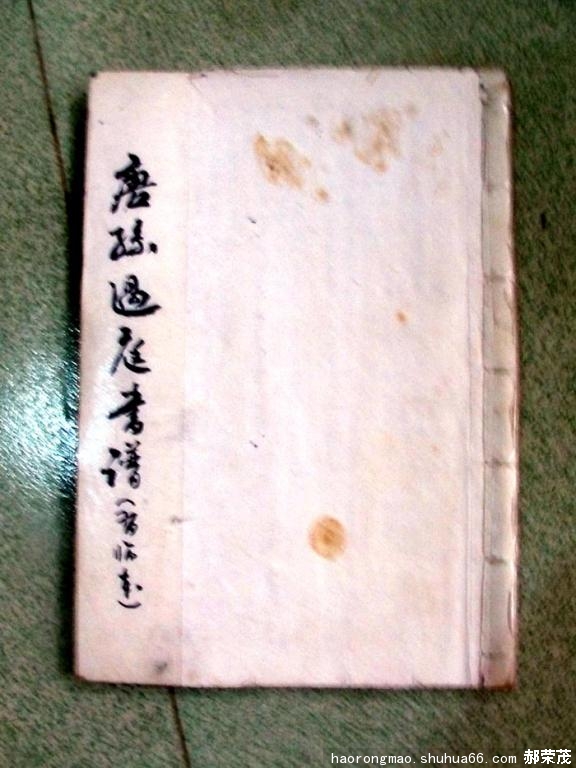 唐孫過庭書譜(習临本)
haorongmao.shuhua66.com 郝荣茂